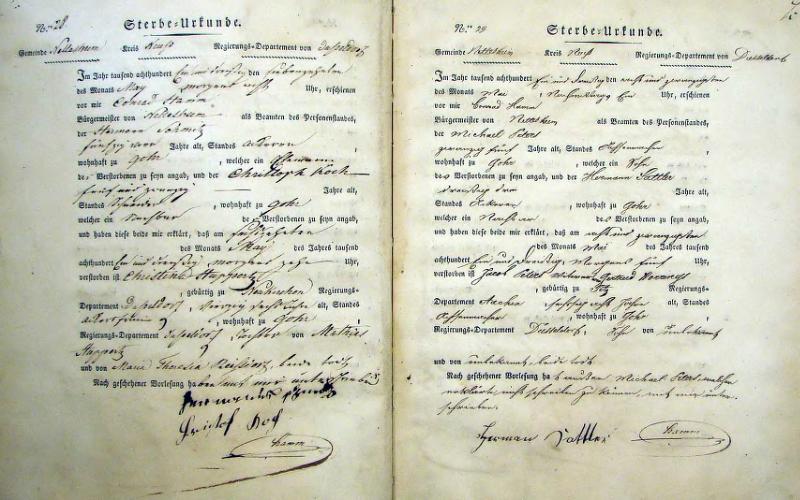 N.ro 28
Sterbe-Urkunde.
Gemeinde Nettesheim Kreis Neuss Regierungs-Departement von Düsseldorf
Im Jahr tausend achthundert Ein und dreißig den siebenzehnten
des Monats May morgens acht Uhr, erschienen
vor mir Conrad Hamm
Bürgermeister von Nettesheim als Beamten des Personenstandes,
der Hermann Schmitz
fünfzig zwei Jahre alt, Standes Ackerer
wohnhaft zu Gohr, welcher ein Ehemann
der Verstorbenen zu seyn angab, und der Christoph Koch
fünf und zwanzig Jahre alt,
Standes, wohnhaft zu Gohr
welcher ein Nachbar de Verstorbenen zu seyn angab,
und haben diese beide mir erklärt, daß am fünfzehnten
des Monats May des Jahres tausend
achthundert Ein und dreißig, morgens zehn Uhr,
verstorben ist Christina Huppertz
, gebürtig zu Regierungs-
Departement Düsseldorf, vierzig sechs Jahre alt, Standes
, wohnhaft zu Gohr
Regierungs-Departement Düsseldorf, Tochter von Mathias
Huppertz
und von Maria Theresia, beide todt
Nach geschehener Vorlesung haben mit mir unterschrieben
Hermann Schmitz
Cristof Koch
Hamm
N.ro 29
Sterbe-Urkunde.
Gemeinde Nettesheim Kreis Neuss Regierungs-Departement von Düsseldorf
Im Jahr tausend achthundert Ein und dreißig den acht und zwanzigsten
des Monats Mai, Nachmittags Ein Uhr, erschienen
vor mir Conrad Hamm
Bürgermeister von Nettesheim als Beamten des Personenstandes,
der Michael Peters
zwanzig fünf Jahre alt, Standes
wohnhaft zu Gohr, welcher ein Sohn
des Verstorbenen zu seyn angab, und der Hermann Sattler
dreißig drei Jahre alt,
Standes Ackerer, wohnhaft zu Gohr
welcher ein Nachbar des Verstorbenen zu seyn angab,
und haben diese beide mir erklärt, daß am acht und zwanzigsten
des Monats Mai des Jahres tausend
achthundert Ein und dreißig, Morgens fünf Uhr,
verstorben ist Jacob Peters
, gebürtig zu Regierungs-
Departement Aachen, sechszig acht Jahre alt, Standes
, wohnhaft zu Gohr
Regierungs-Departement Düsseldorf, Sohn von unbekannt
und von unbekannt, beide todt
Nach geschehener Vorlesung ha t Michael Peters, welcher
erklärte, nicht schreiben zu können, mit mir unter-
schrieben.
Herman Sattler
Hamm